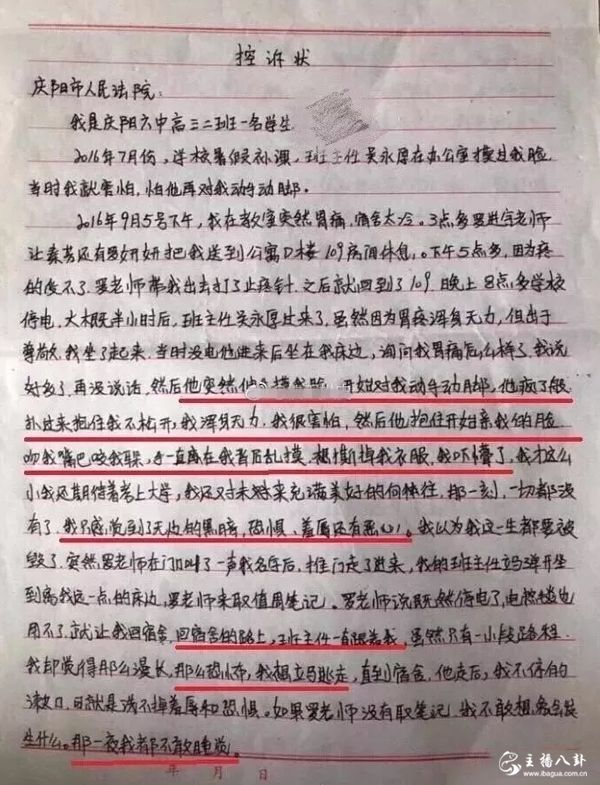 控诉状
庆阳市人民法院：
我是庆阳六中高三二班一名学生
2016年7月份，学校暑假补课，班主任吴永厚在办公室摸过我脸
当时我就害怕，怕他再对我动手动脚。
2016年9月5号下午，我在教室突然胃痛，宿舍太冷。3点多罗进宇老师
让 还有 妍妍把我送到公寓D楼109房间休息。下午5点多，因为疼
的受不了罗老师带我出去打了止疼针。之后就回到了109晚上8点多学校
停电，大概半小时后，班主任吴永厚过来了。虽然因为胃疼浑身无力，但出于
尊敬我坐了起来，当时没电他进来后坐在我床边，询问我胃痛怎么样了，我说
好多了再没说话，然后他突然 摸我脸，开始对我动手动脚，他疯了般
扑过来抱住我不松开，我浑身无力。我很害怕，然后他抱住开始亲我的脸
吻我嘴巴咬我耳朵，手一直在我背后乱摸，想撕掉我衣服，我吓懵了，我才这么
小我还期待着考上大学，我还对未来充满美好的向往，那一刻，一切都没
有了，我只感觉到了无边的黑暗，恐惧、羞辱还有恶心。我以为我这一生都要被
毁了。突然罗老师在门口叫了一声我名字后，推门走了进来，我的班主任立马弹开坐
到离我远一点的床边，罗老师来取值周笔记。罗老师说既然停电了，电热毯也
用不了就让我回宿舍，回宿舍的路上，班主任一直跟着我，虽然只有一小段路程
我却觉得那么漫长，那么恐怖，我想立马逃走，直到宿舍他走后，我不停的
漱口可就是洗不掉羞辱和恐惧。如果罗老师没有取笔记，我不敢想象会发
生什么。那一夜我都不敢睡觉。
年 月 日
主播八卦
www.ibagua.com.cn